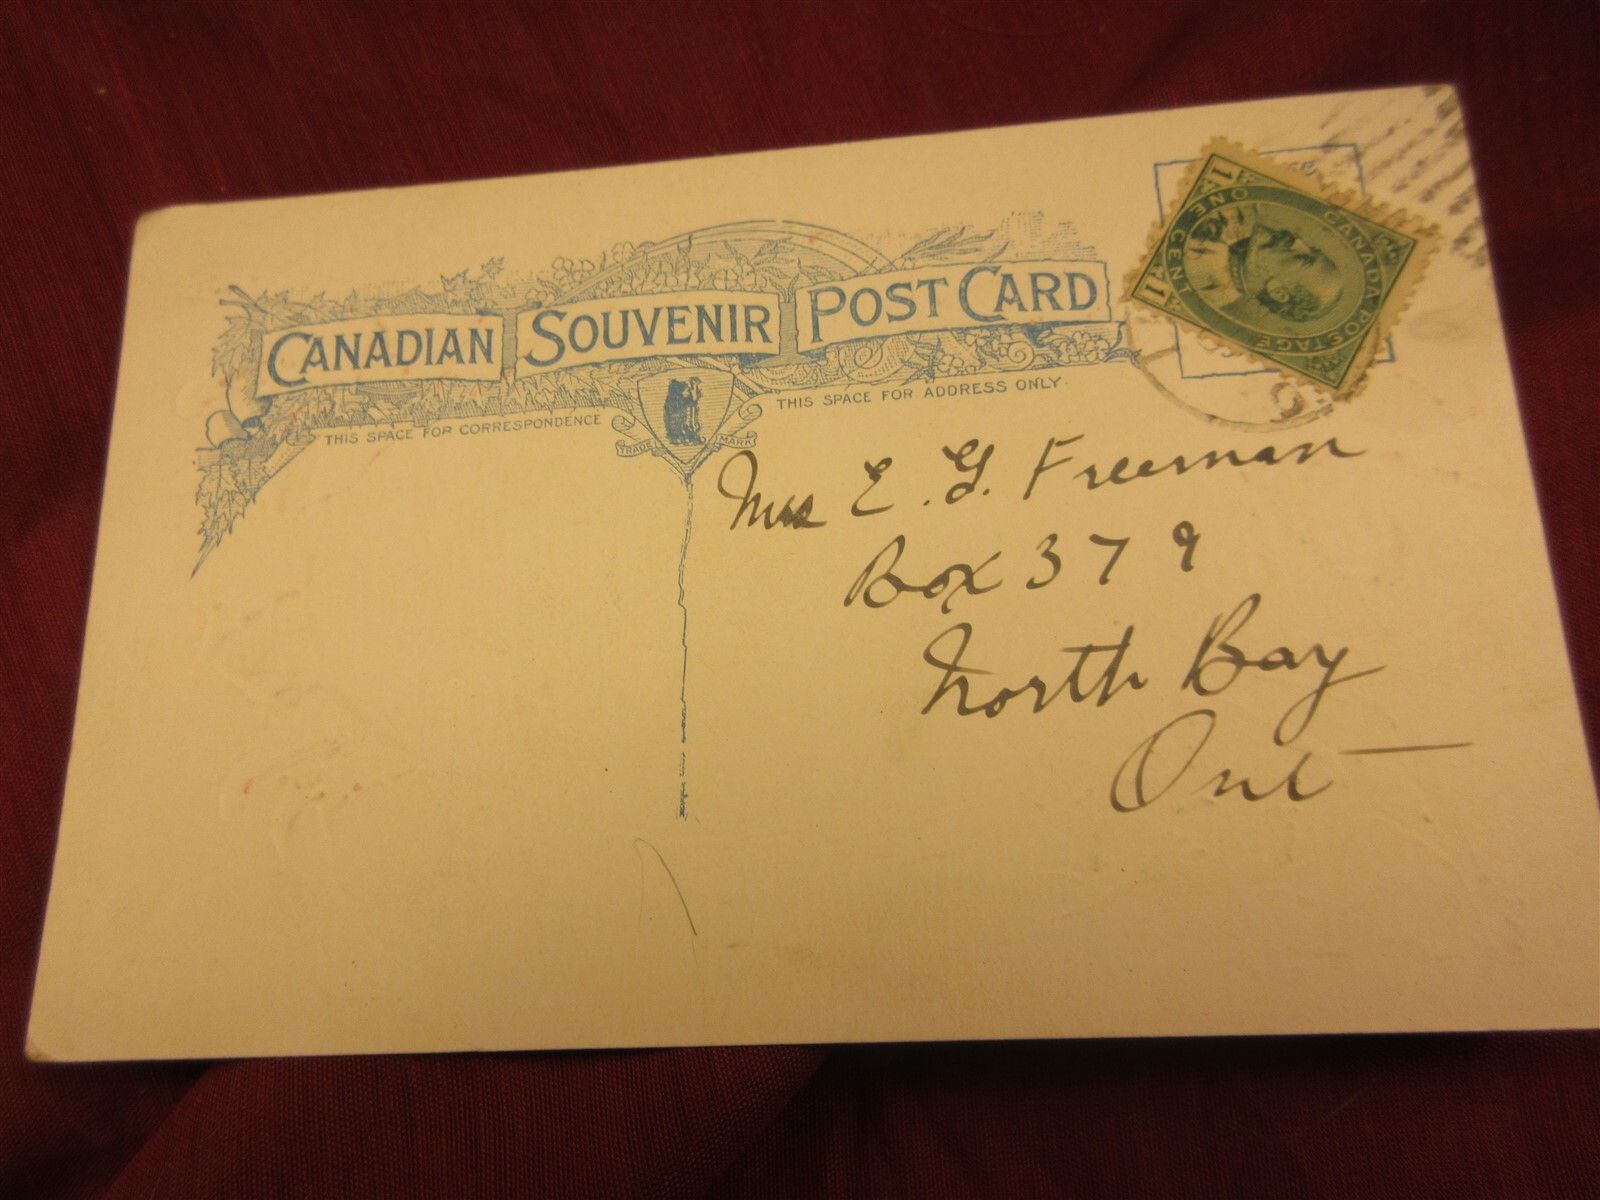 CANADIAN SOUVENIR POST CARD
THIS SPACE FOR CORRESPONDENCE
THIS SPACE FOR ADDRESS ONLY.
TRADE MARK
CANADA POSTAGE
1 ONE CENT 1
Mrs E. G. Freeman
Box 379
North Bay
Ont